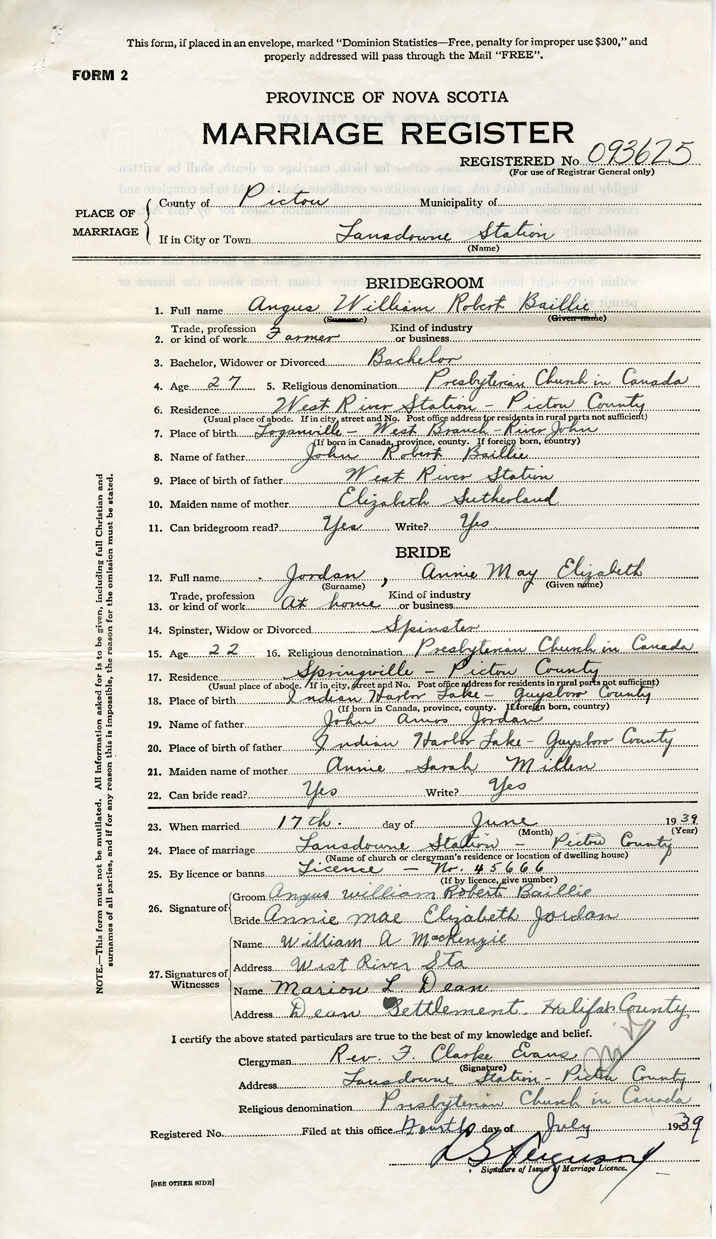 This form, if placed in an envelope, marked "Dominion Statistics—Free, penalty for improper use $300," and
properly addressed will pass through the Mail "FREE".
FORM 2
PROVINCE OF NOVA SCOTIA
MARRIAGE REGISTER
REGISTERED No 093625
(For use of Registrar General only)
PLACE OF MARRIAGE
County of Pictou Municipality of
If in City or Town Lansdowne Station
(Name)
BRIDEGROOM
1. Full name Angus William Robert Baillie
(Surname) (Given name)
2. Trade, profession or kind of work Farmer Kind of industry or business
3. Bachelor, Widower or Divorced Bachelor
4. Age 27 5. Religious denomination Presbyterian Church in Canada
6. Residence West River Station - Pictou County
(Usual place of abode. If in city, street and No. Post office address for residents in rural parts not sufficient)
7. Place of birth Loganville - West Branch - River John
(If born in Canada, province, county. If foreign born, country)
8. Name of father John Robert Baillie
9. Place of birth of father West River Station
10. Maiden name of mother Elizabeth Sutherland
11. Can bridegroom read? Yes Write? Yes
BRIDE
12. Full name Jordan, Annie May Elizabeth
(Surname) (Given name)
13. Trade, profession or kind of work At home Kind of industry or business
14. Spinster, Widow or Divorced Spinster
15. Age 22 16. Religious denomination Presbyterian Church in Canada
17. Residence Springville - Pictou County
(Usual place of abode. If in city, street and No. Post office address for residents in rural parts not sufficient)
18. Place of birth Indian Harbor Lake - Guysboro County
(If born in Canada, province, county. If foreign born, country)
19. Name of father John Amos Jordan
20. Place of birth of father Indian Harbor Lake - Guysboro County
21. Maiden name of mother Annie Sarah Millen
22. Can bride read? Yes Write? Yes
23. When married 17th. day of June 1939
(Month) (Year)
24. Place of marriage Lansdowne Station - Pictou County
(Name of church or clergyman's residence or location of dwelling house)
25. By licence or banns Licence - No. 45666
(If by licence, give number)
26. Signature of
Groom Angus william Robert Baillie
Bride Annie mae Elizabeth Jordan
27. Signatures of Witnesses
Name William A MacKenzie
Address West River Sta
Name Marion L Dean
Address Dean Settlement. Halifax County
I certify the above stated particulars are true to the best of my knowledge and belief.
Clergyman Rev. F. Clarke Evans
(Signature)
Address Lansdowne Station - Pictou County
Religious denomination Presbyterian Church in Canada
Registered No. Filed at this office Fourth day of July 1939
Ferguson
Signature of Issuer of Marriage Licence.
[SEE OTHER SIDE]
NOTE.—This form must not be mutilated. All information asked for is to be given, including full Christian and
surnames of all parties, and if for any reason this is impossible, the reason for the omission must be stated.